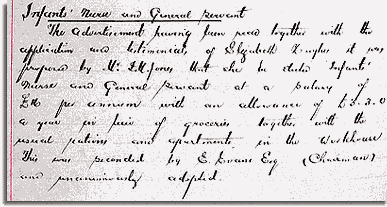 Infants' Nurse and General Servant
The advertisement having been read together with the
application and testimonials of Elizabeth Hughes it was
proposed by Mr. Jones that she be elected Infants'
Nurse and General Servant at a salary of
per annum with an allowance of £5.5.0
a year in lieu of groceries together with the
usual rations and apartments, in the Workhouse
This was seconded by E. Evans Esq (Chairman)
and unanimously adopted.